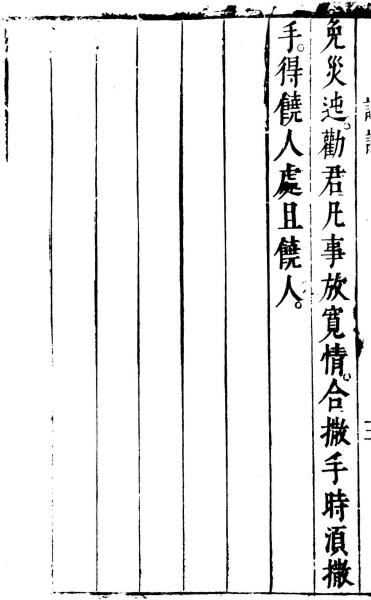 免災迍。勸君凡事放寬情。合撒手時湏撒
手。得饒人處且饒人。